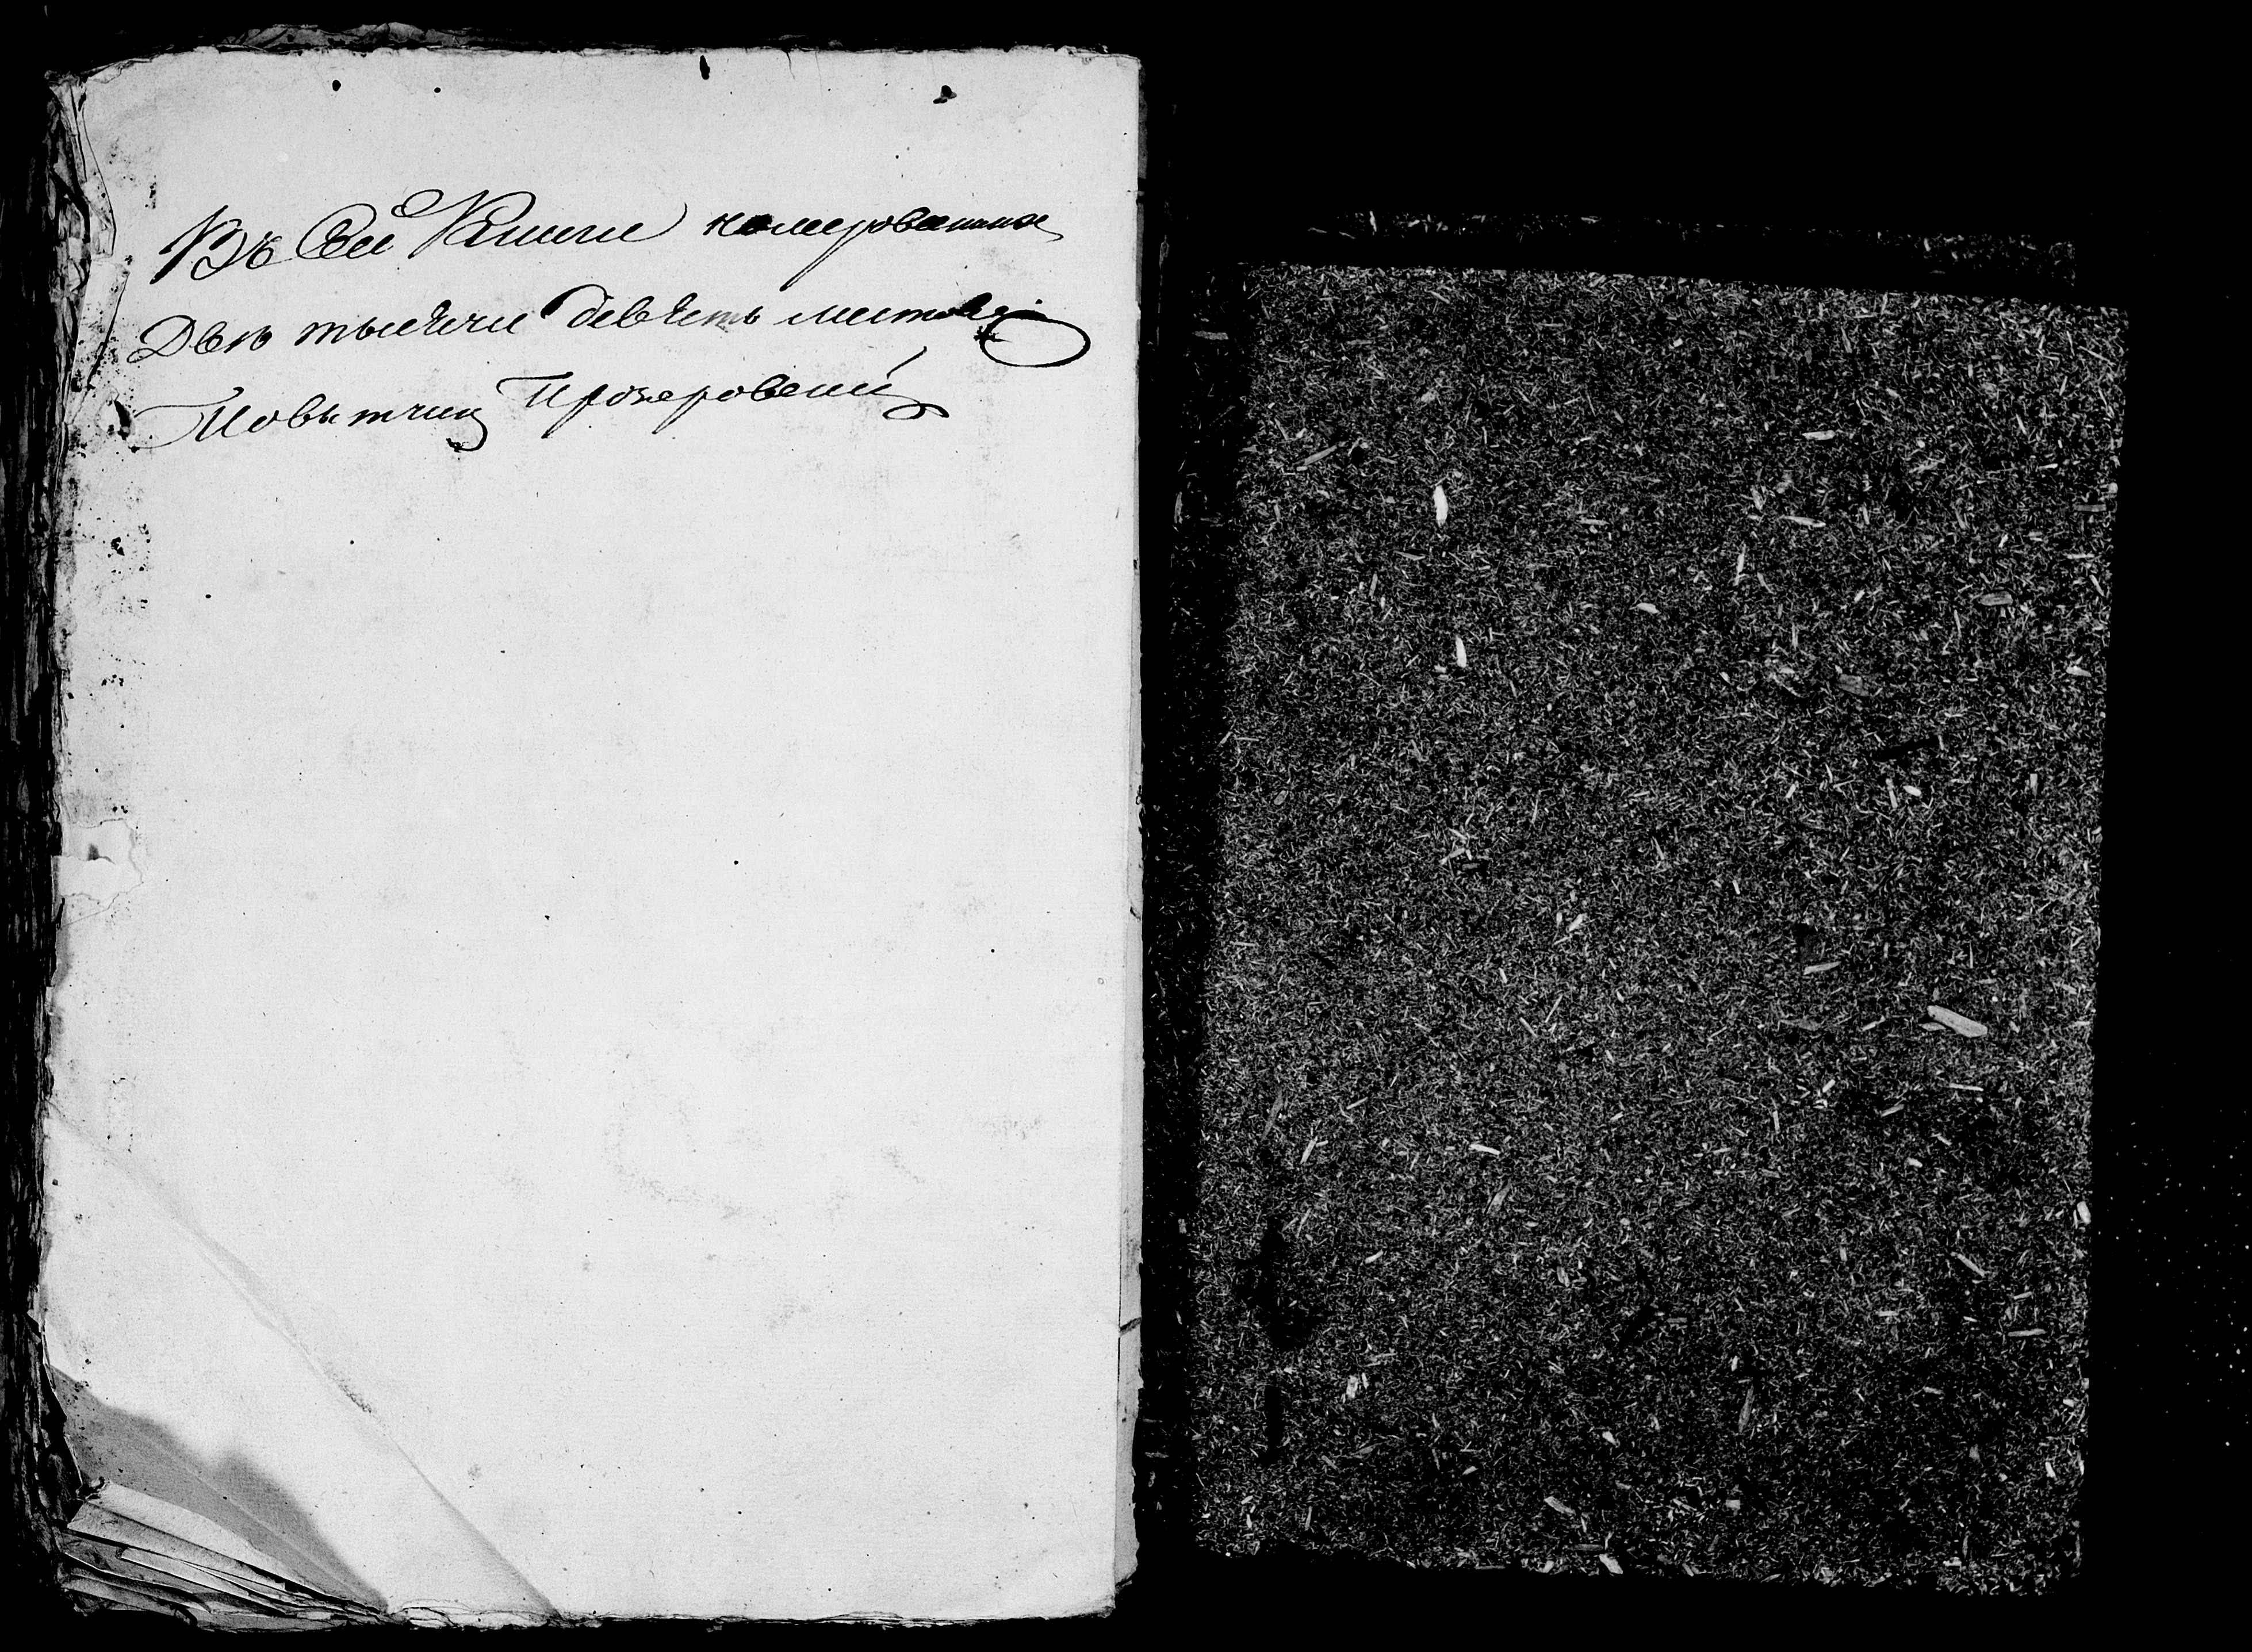 Въ Сей Книги номерованных
Двѣ тысячи девять листовъ
Повытчик Прозоровский